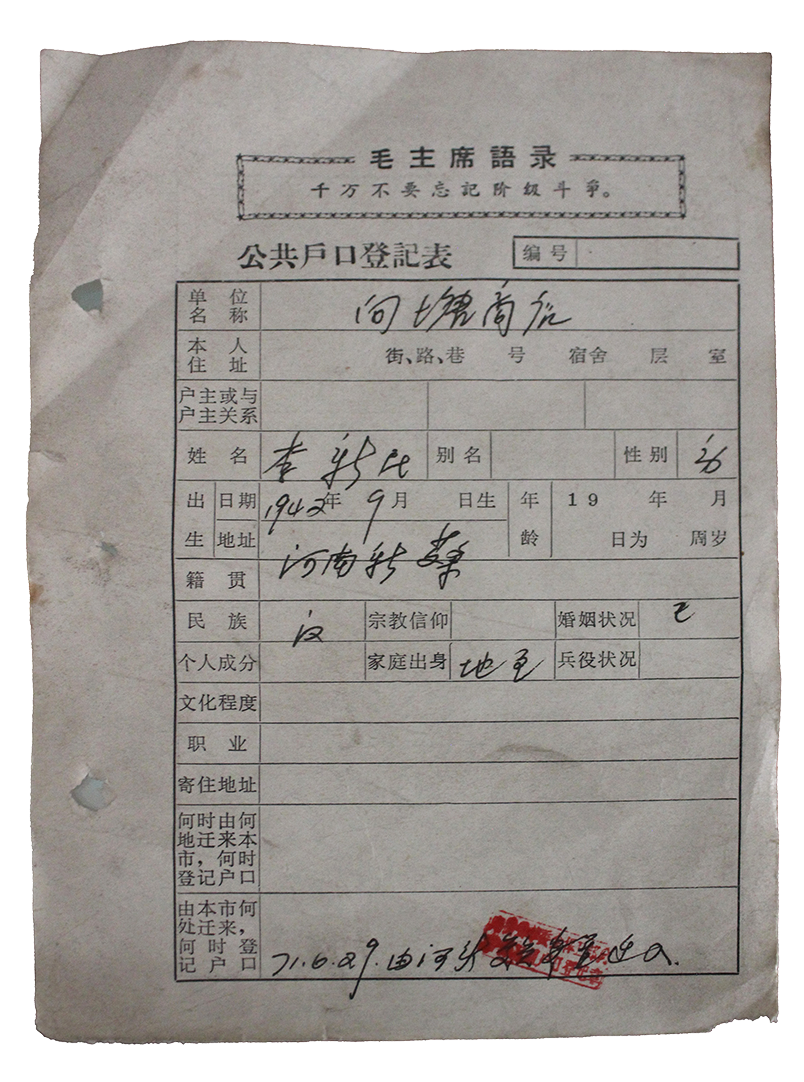 毛主席語录
千万不要忘記阶級斗爭。
公共戶口登記表 编号
单位名称 向塘商店
本人住址 街、路、巷 号 宿舍 层 室
户主或与户主关系
姓名 李新民 别名 性别 男
出生 日期 1942年9月 日生 年龄 19 年 月 日为 周岁
地址 河南新蔡
籍贯
民族 汉 宗教信仰 婚姻状况 已
个人成分 家庭出身 地主 兵役状况
文化程度
职业
寄住地址
何时由何地迁来本市,何时登记户口
由本市何处迁来,何时登记户口 71.6.29.由 迁入.